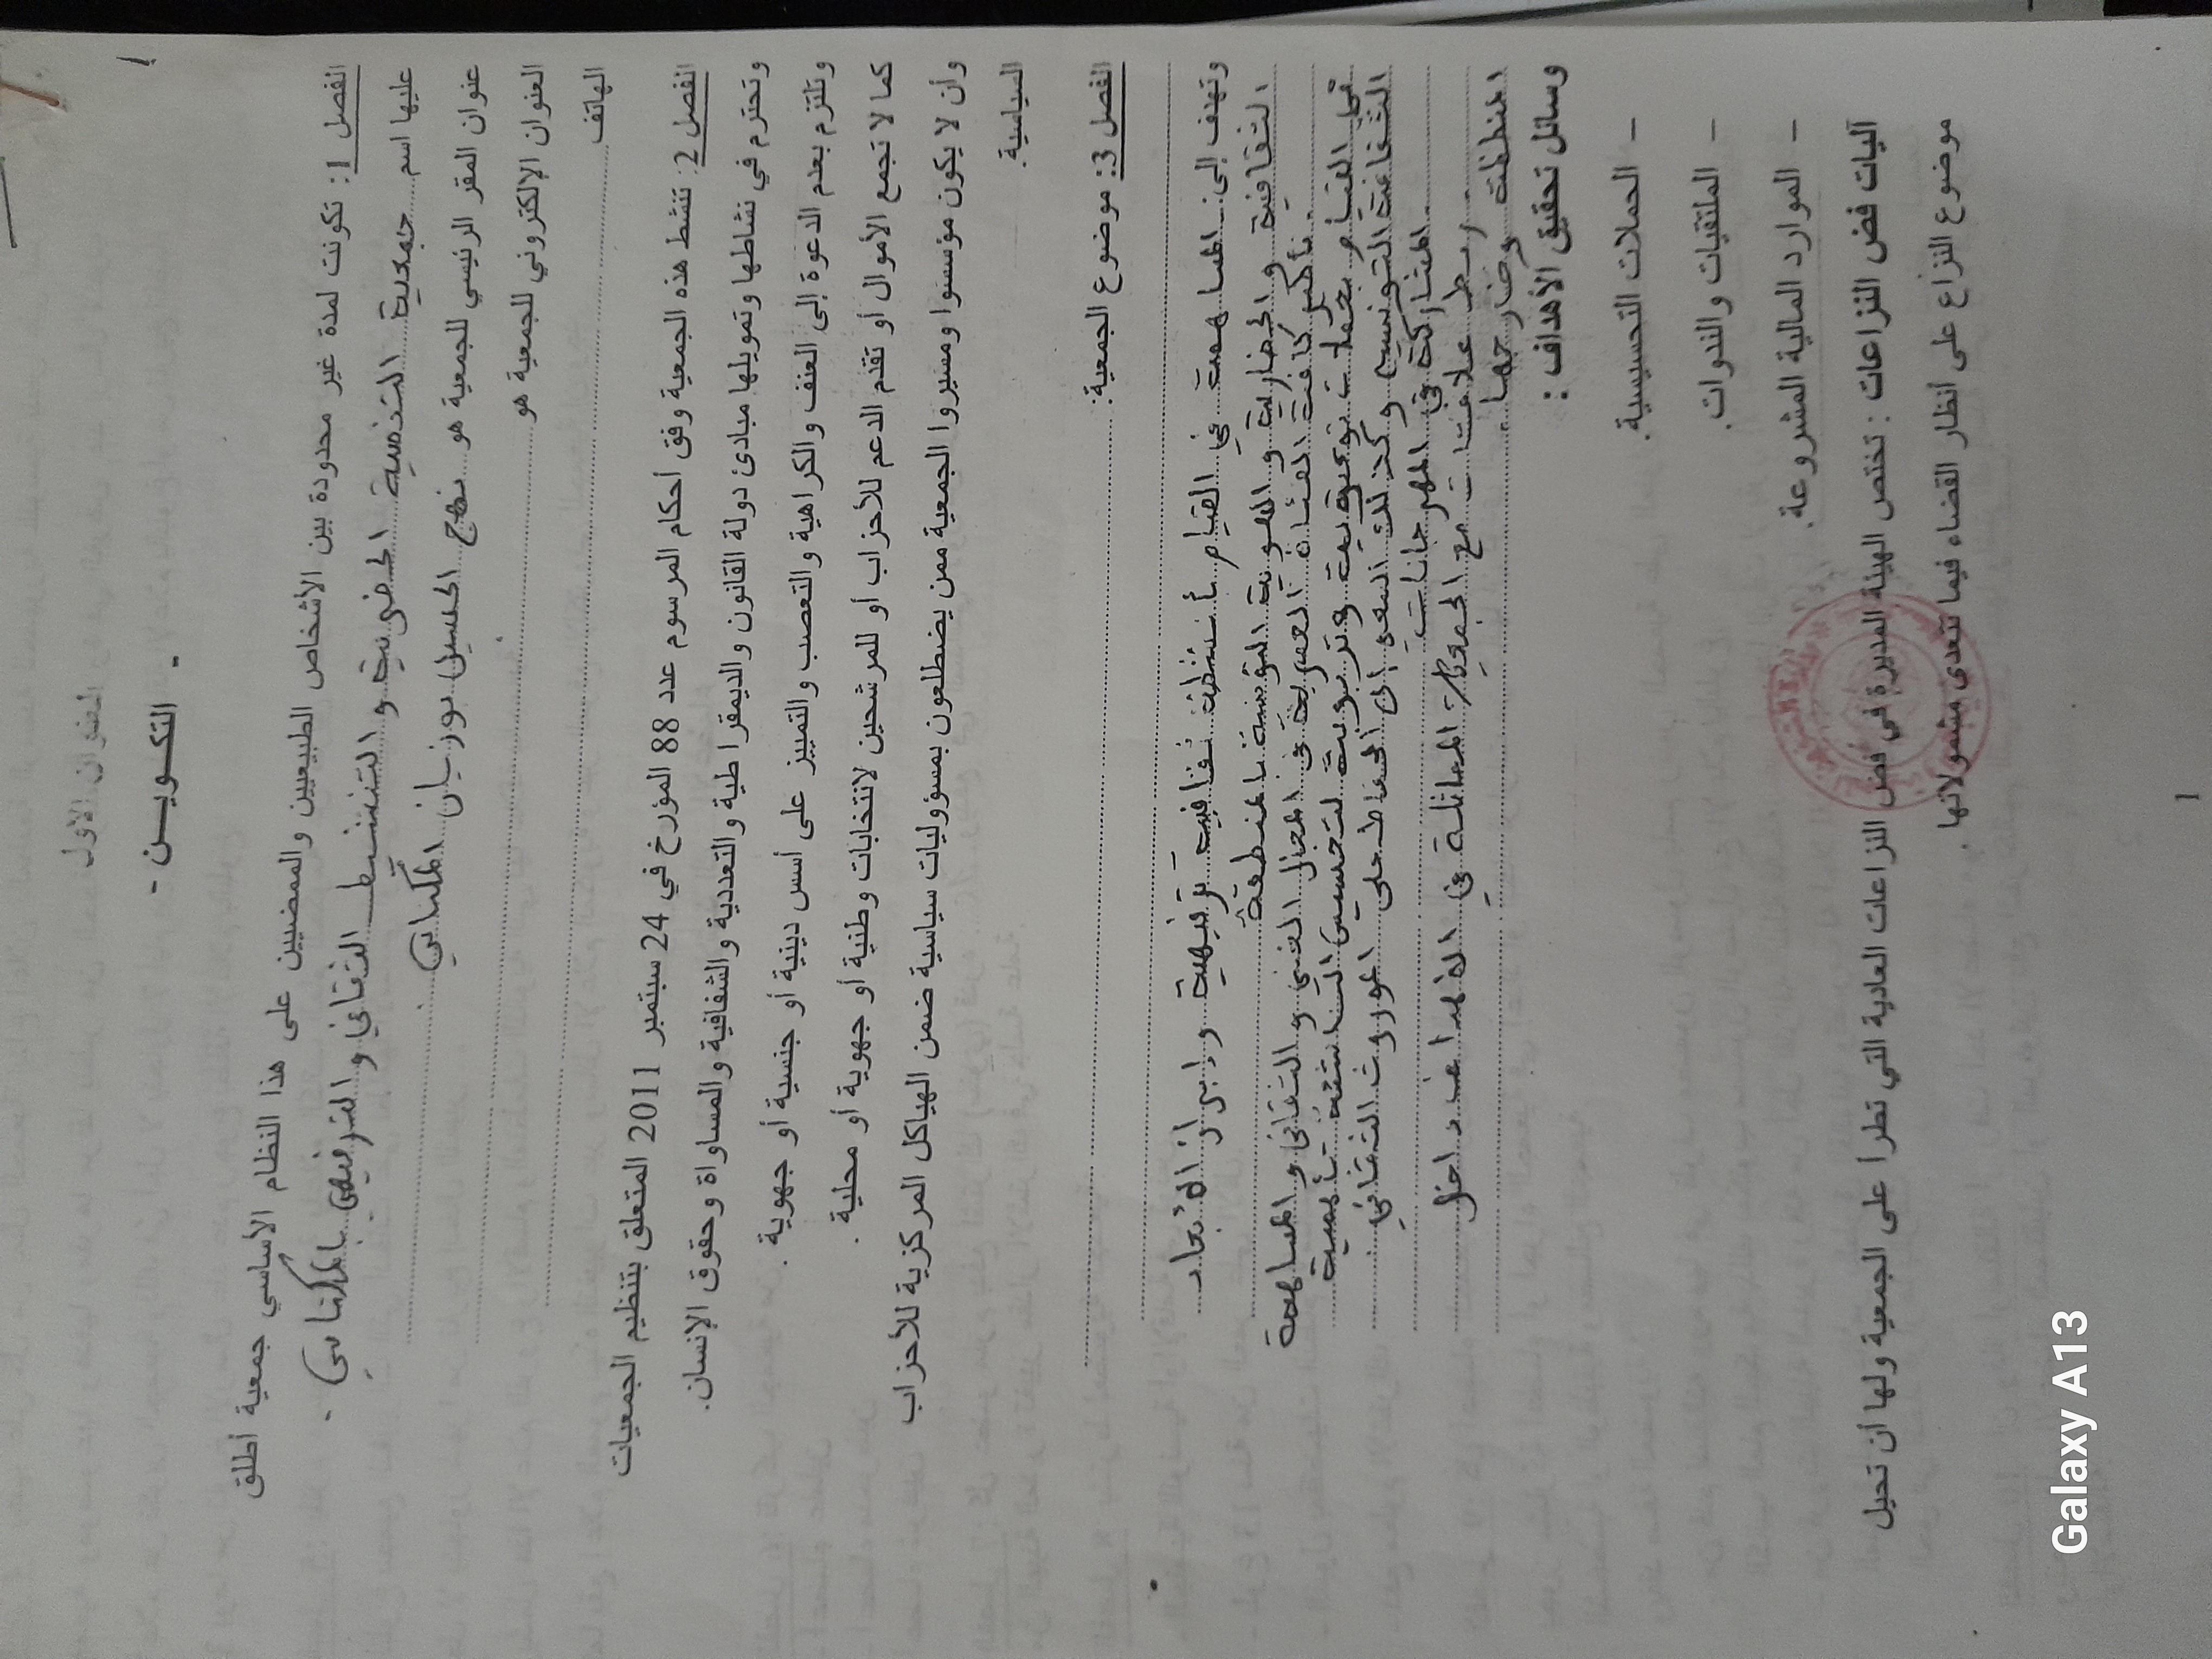 العنوان الأول
- التكويــن -
الفصل 1: تكونت لمدة غير محدودة بين الأشخاص الطبيعيين والممضيين على هذا النظام الأساسي جمعية أطلق
عليها اسم جمعية التنمية الحضرية و التنشيط الثقافي و الترفيهي بالمكناسي.
عنوان المقر الرئيسي للجمعية هو نهج الحسين بوزيان المكناسي
العنوان الإلكتروني للجمعية هو
الهاتف
الفصل 2: تنشط هذه الجمعية وفق أحكام المرسوم عدد 88 المؤرخ في 24 سبتمبر 2011 المتعلق بتنظيم الجمعيات
وتحترم في نشاطها وتمويلها مبادئ دولة القانون والديمقراطية والتعددية والشفافية والمساواة وحقوق الإنسان.
وتلتزم بعدم الدعوة إلى العنف والكراهية والتعصب والتمييز على أسس دينية أو جنسية أو جهوية.
كما لا تجمع الأموال أو تقدم الدعم للأحزاب أو للمرشحين لانتخابات وطنية أو جهوية أو محلية.
وأن لا يكون مؤسسوا ومسيروا الجمعية ممن يضطلعون بمسؤوليات سياسية ضمن الهياكل المركزية للأحزاب
السياسية.
الفصل 3: موضوع الجمعية:
وتهدف إلى: المساهمة في القيام بأنشطة ثقافية ترفيهية و إبراز الأبعاد
الثقافية و الحضارية و الهوية التونسية بالمنطقة
كافة الفئات العمرية في المجال الفني و الثقافي و المساهمة
القيام بحملات توعوية و تربوية لتحسيس الناشئة بأهمية
الثقافة التونسية و كذلك السعي إلى الحفاظ على الموروث الثقافي
المشاركة في المهرجانات
ربط علاقات مع الجمعيات المماثلة في الأهداف داخل
المنطقة وخارجها
وسائل تحقيق الأهداف :
- الحملات التحسيسية.
- الملتقيات والندوات.
- الموارد المالية المشروعة.
آليات فض النزاعات : تختص الهيئة المديرة في فض النزاعات العادية التي تطرا على الجمعية ولها أن تحيل
موضوع النزاع على أنظار القضاء فيما تتعدى مشمولاتها.
1
Galaxy A13